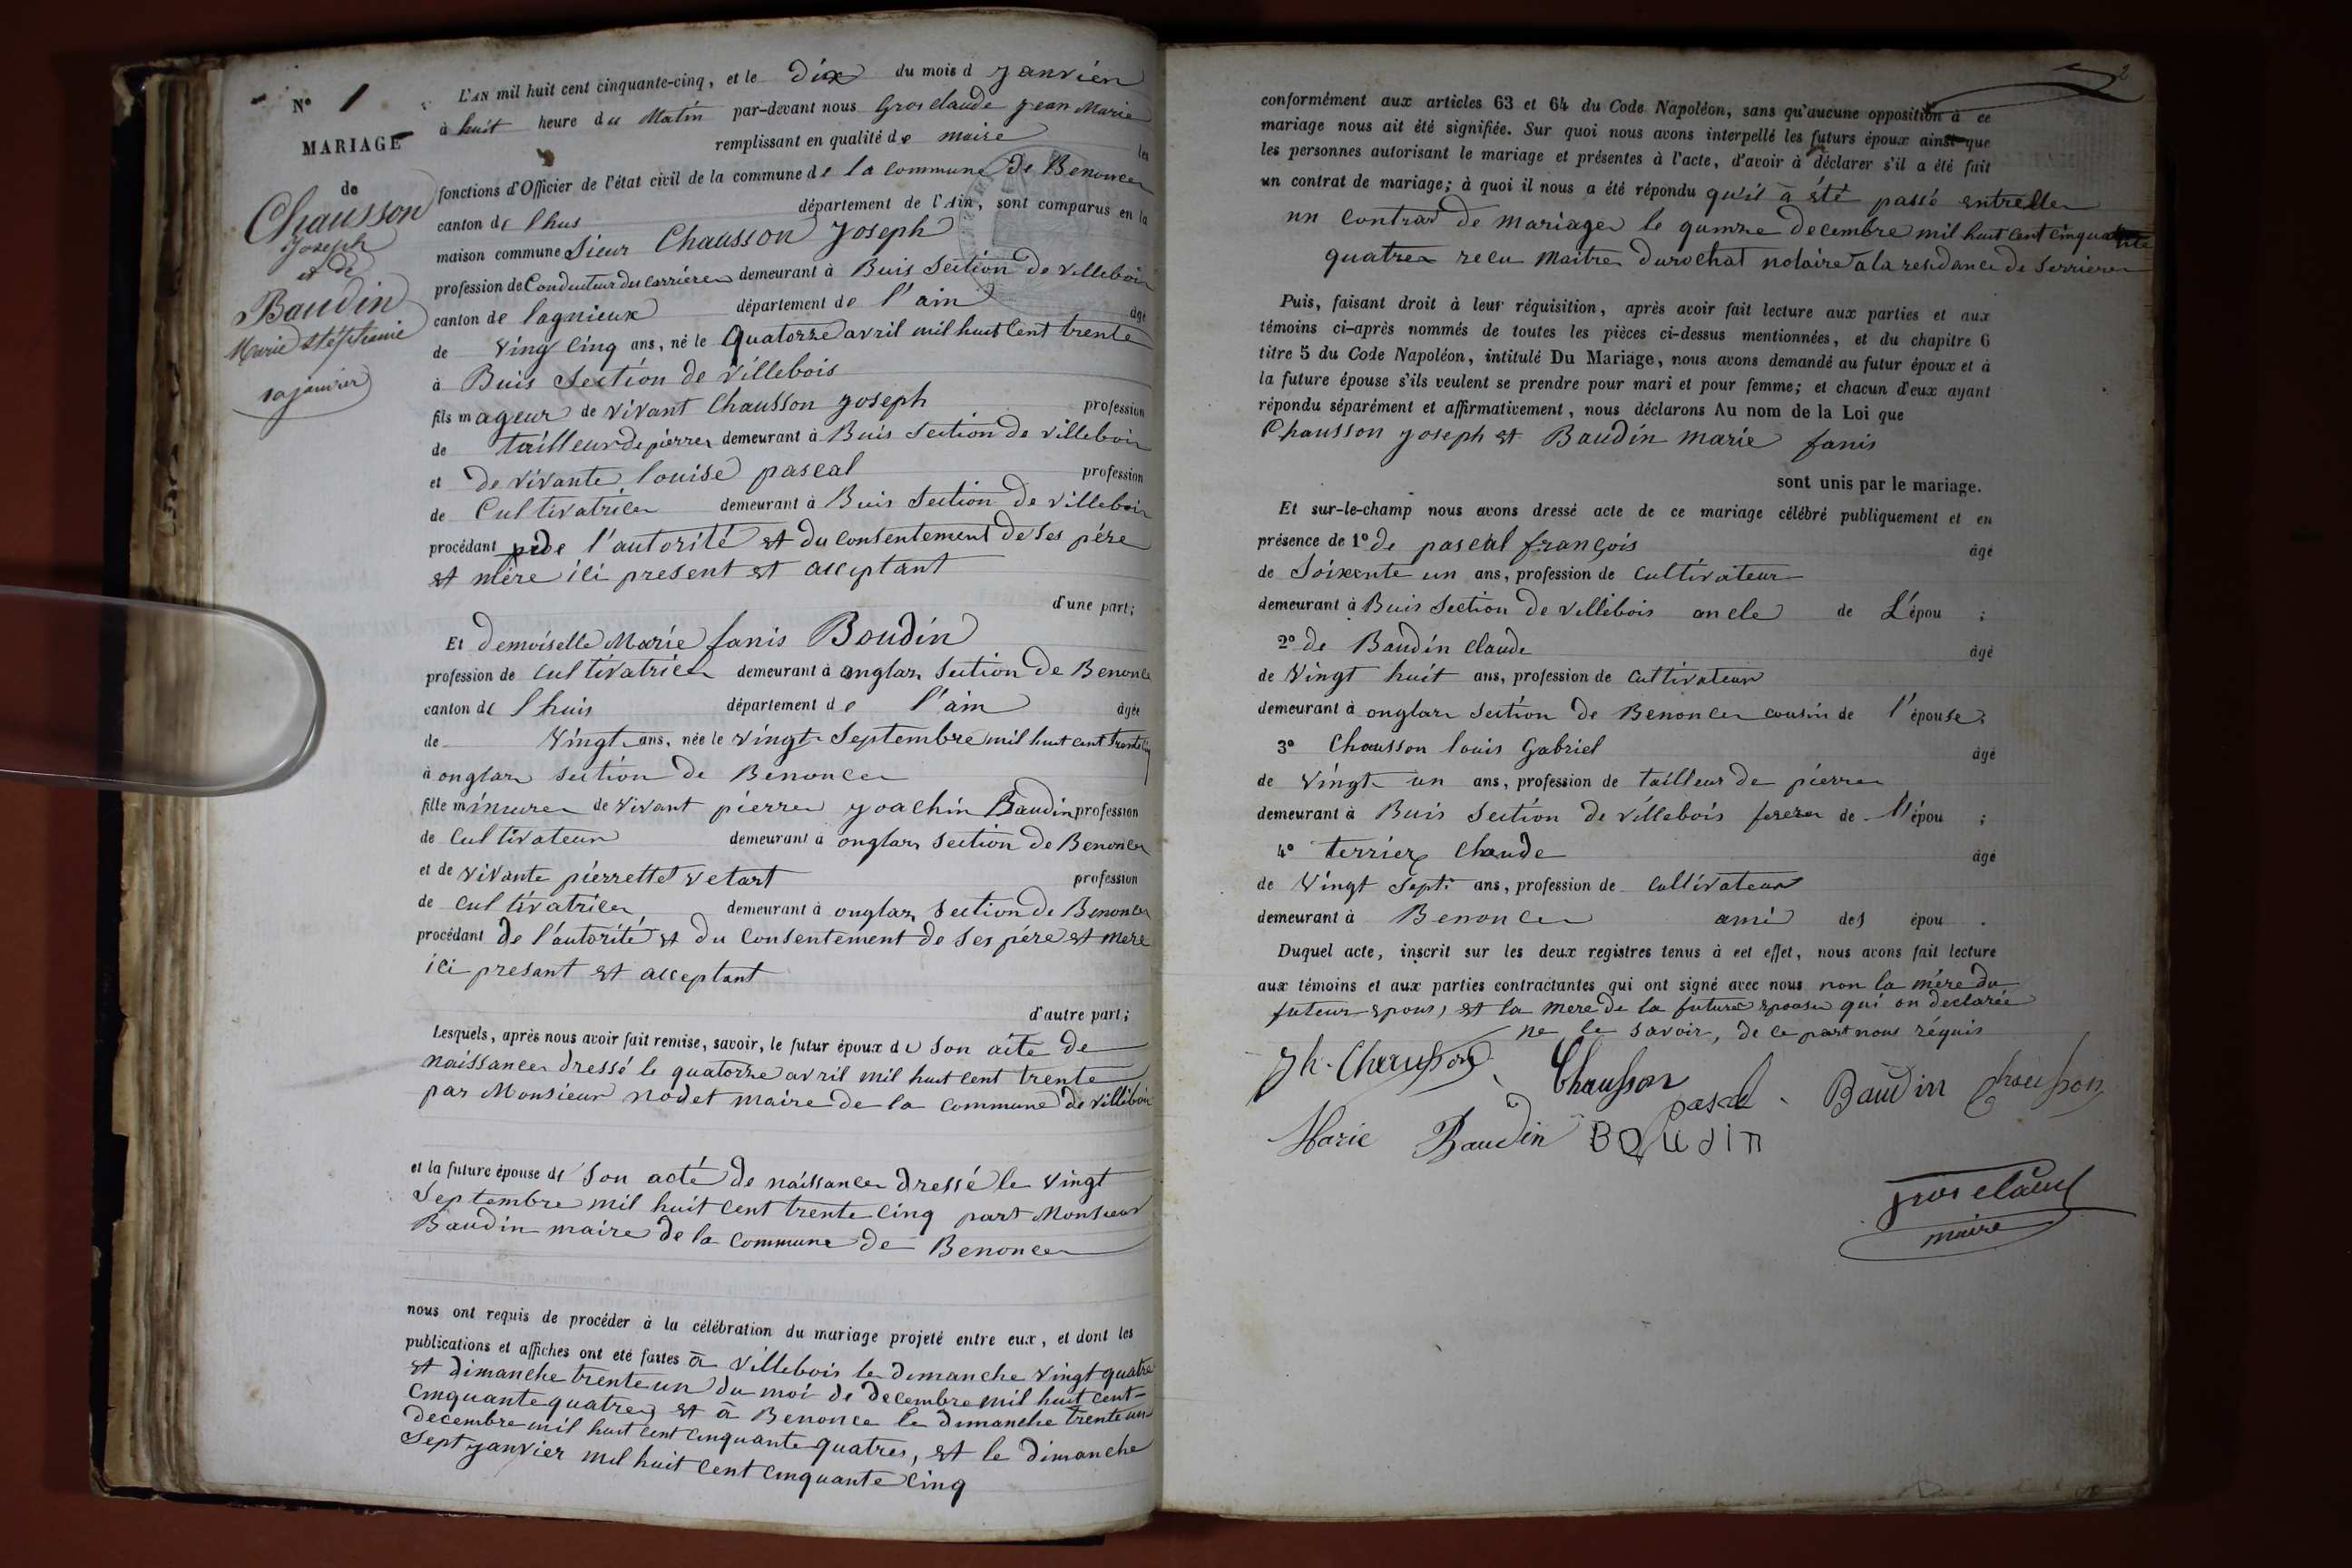 N° 1
MARIAGE
de
Chausson
Joseph
et de
Baudin
Marie Stéphanie
10 janvier
L'AN mil huit cent cinquante-cinq, et le Dix du mois d Janvier
à huit heure du Matin par-devant nous Grosclaude Jean Marie
remplissant en qualité de maire les
fonctions d'Officier de l'état civil de la commune de la commune De Benonce
canton de lhus département de l'Ain, sont comparus en la
maison commune Sieur Chausson Joseph
profession de Conducteur des Carrières demeurant à Buis Section de Villebois
canton de lagnieux département de l'ain âgé
de Ving Cinq ans, né le Quatorze avril mil huit Cent trente
à Buis Section de Villebois
fils mageur de vivant Chausson Joseph profession
de tailleur de pierre demeurant à Buis Section de Villebois
et de vivante louise pascal profession
de Cultivatrice demeurant à Buis Section de Villebois
procédant de l'autorité et du consentement de ses pére
et mère ici present et acceptant
d'une part;
Et demoiselle Marie fanis Baudin
profession de cultivatrice demeurant à onglas Section de Benonce
canton de lhuis département de l'ain âgée
de Vingt ans, née le vingt Septembre mil huit cent trente cinq
à onglas section de Benonce
fille mineure de vivant pierre Joachin Baudin profession
de Cultivateur demeurant à onglas Section de Benonce
et de vivante pierrette vetart profession
de cultivatrice demeurant à onglas Section de Benonce
procédant de l'autorité et du consentement de ses pére et mere
ici presant et acceptant
d'autre part;
Lesquels, après nous avoir fait remise, savoir, le futur époux de Son acte de
naissance dressé le quatorze avril mil huit cent trente
par Monsieur Nodet maire de la commune de Villebois
et la future épouse de Son acte de naissance dressé le Vingt
Septembre mil huit Cent trente Cinq part Monsieur
Baudin maire de la commune de Benonce
nous ont requis de procéder à la célébration du mariage projeté entre eux, et dont les
publications et affiches ont été faites à Villebois le dimanche vingt quatre
et dimanche trente un du moi de decembre mil huit cent
cinquante quatre, et à Benonce le dimanche trente un
decembre mil huit cent cinquante quatres, et le dimanche
Sept janvier mil huit cent cinquante cinq
2
conformément aux articles 63 et 64 du Code Napoléon, sans qu'aucune opposition à ce
mariage nous ait été signifiée. Sur quoi nous avons interpellé les futurs époux ainsi que
les personnes autorisant le mariage et présentes à l'acte, d'avoir à déclarer s'il a été fait
un contrat de mariage; à quoi il nous a été répondu qu'il à été passé entre
un Contrat de mariage le quinze decembre mil huit cent cinquante
quatre recu Maitre Durochat notaire a la residance de Serriere
Puis, faisant droit à leur réquisition, après avoir fait lecture aux parties et aux
témoins ci-après nommés de toutes les pièces ci-dessus mentionnées, et du chapitre 6
titre 5 du Code Napoléon, intitulé Du Mariage, nous avons demandé au futur époux et à
la future épouse s'ils veulent se prendre pour mari et pour femme; et chacun d'eux ayant
répondu séparément et affirmativement, nous déclarons Au nom de la Loi que
Chausson Joseph et Baudin marie fanis
sont unis par le mariage.
Et sur-le-champ nous avons dressé acte de ce mariage célébré publiquement et en
présence de 1° de pascal françois âgé
de Soixente un ans, profession de Cultivateur
demeurant à Buis Section de Villebois oncle de L'épou ;
2° de Baudin Claude âgé
de Vingt huit ans, profession de Cultivateur
demeurant à onglas Section de Benonce cousin de l'épouse;
3° Chausson louis Gabriel âgé
de Vingt un ans, profession de tailleur de pierre
demeurant à Buis Section de Villebois frere de l'épou ;
4° terrier Claude âgé
de Vingt Sept ans, profession de Cultivateur
demeurant à Benonce ami des épou .
Duquel acte, inscrit sur les deux registres tenus à cet effet, nous avons fait lecture
aux témoins et aux parties contractantes qui ont signé avec nous non la mére du
futeur epoux, et la mere de la future epouse qui on declarée
ne le savoir, de ce part nous réquis
Jh. Chausson Chausson pascal Baudin Chausson
Marie Baudin BaUdin
grosclaude
maire